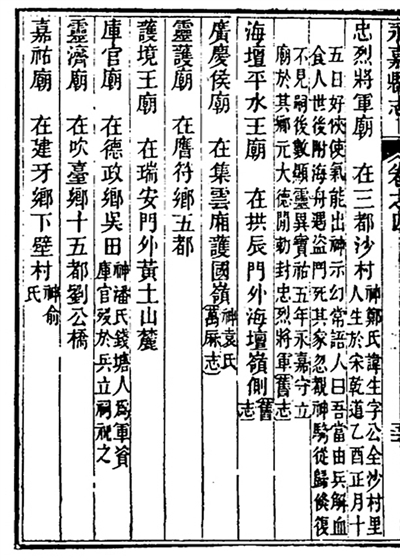 永嘉縣志 卷之四
忠烈將軍廟 在三都沙村 神鄭氏諱生字公全沙村里
人生於宋乾道乙酉正月十
五日好俠使氣能出神示幻常語人曰吾當由兵解血
食人世後附海舟遇盜鬥死其家忽覩神騎從歸倏復
不見嗣後數顯靈異寶祐五年永嘉守立
廟於其鄉元大德間勅封忠烈將軍舊志
海壇平水王廟 在拱辰門外海壇嶺側 舊志
廣慶侯廟 在集雲廂護國嶺 神袁氏
萬厤志
靈護廟 在膺符鄉五都
護境王廟 在瑞安門外黃土山麓
庫官廟 在德政鄉吳田 神潘氏錢塘人爲軍資
庫官歿於兵立祠祝之
靈濟廟 在吹臺鄉十五都劉公橋
嘉祐廟 在建牙鄉下壁村 神俞
氏